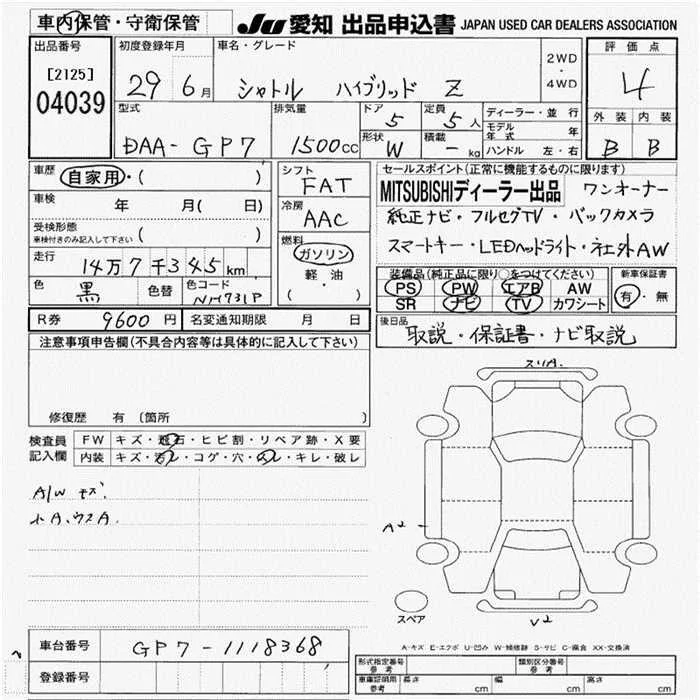 車内保管・守衛保管
JU 愛知 出品申込書 JAPAN USED CAR DEALERS ASSOCIATION
出品番号
[2125]
04039
初度登録年月
29 6月
車名・グレード
シャトル ハイブリッド Z
2WD
・
4WD
評価点
4
外装 内装
B B
型式
DAA-GP7
排気量
1500cc
ドア
5
定員
5人
形状
W
積載
- kg
ディーラー・並行
モデル年式 年
ハンドル 左・右
車歴
自家用・( )
車検 年 月( 日)
受検形態
車検付きのみ記入して下さい ( )
走行
14万7千345km
色
黒
色替
色コード
NH731P
シフト
FAT
冷房
AAC
燃料
ガソリン
軽・油
( ・ )
セールスポイント(正常に機能するものに限ります)
MITSUBISHIディーラー出品 ワンオーナー
純正ナビ・フルセグTV・バックカメラ
スマートキー・LEDヘッドライト・社外AW
装備品(純正品に限り○をつけてください)
PS PW エアB AW
SR ナビ TV カワシート
新車保証書
有・無
R券 9600円
名変通知期限 月 日
後日品
取説・保証書・ナビ取説
注意事項申告欄(不具合内容等は具体的に記入して下さい)
修復歴 有 〔箇所 〕
検査員
記入欄
FW キズ・飛石・ヒビ割・リペア跡・X要
内装 キズ・汚レ・コゲ・穴・ハレ・キレ・破レ
A/W キズ.
小A.ウスA.
スリA.
A2
V2
スペア
A-キズ E-エクボ U-凹み W-補修跡 S-サビ C-腐食 XX-交換済
車台番号
GP7-1118368
登録番号
形式指定番号
参考
類別区分番号
参考
車庫証明用
参考
長さ cm
幅 cm
高さ cm